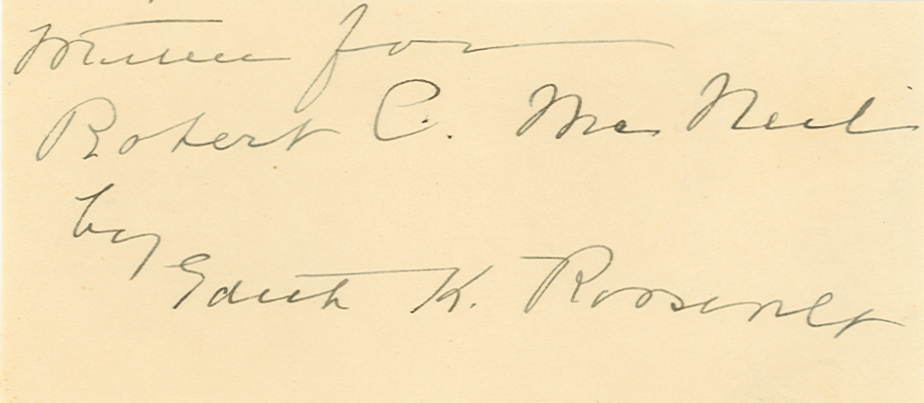 Written for
Robert C. Mac Neil
by
Edith K. Roosevelt